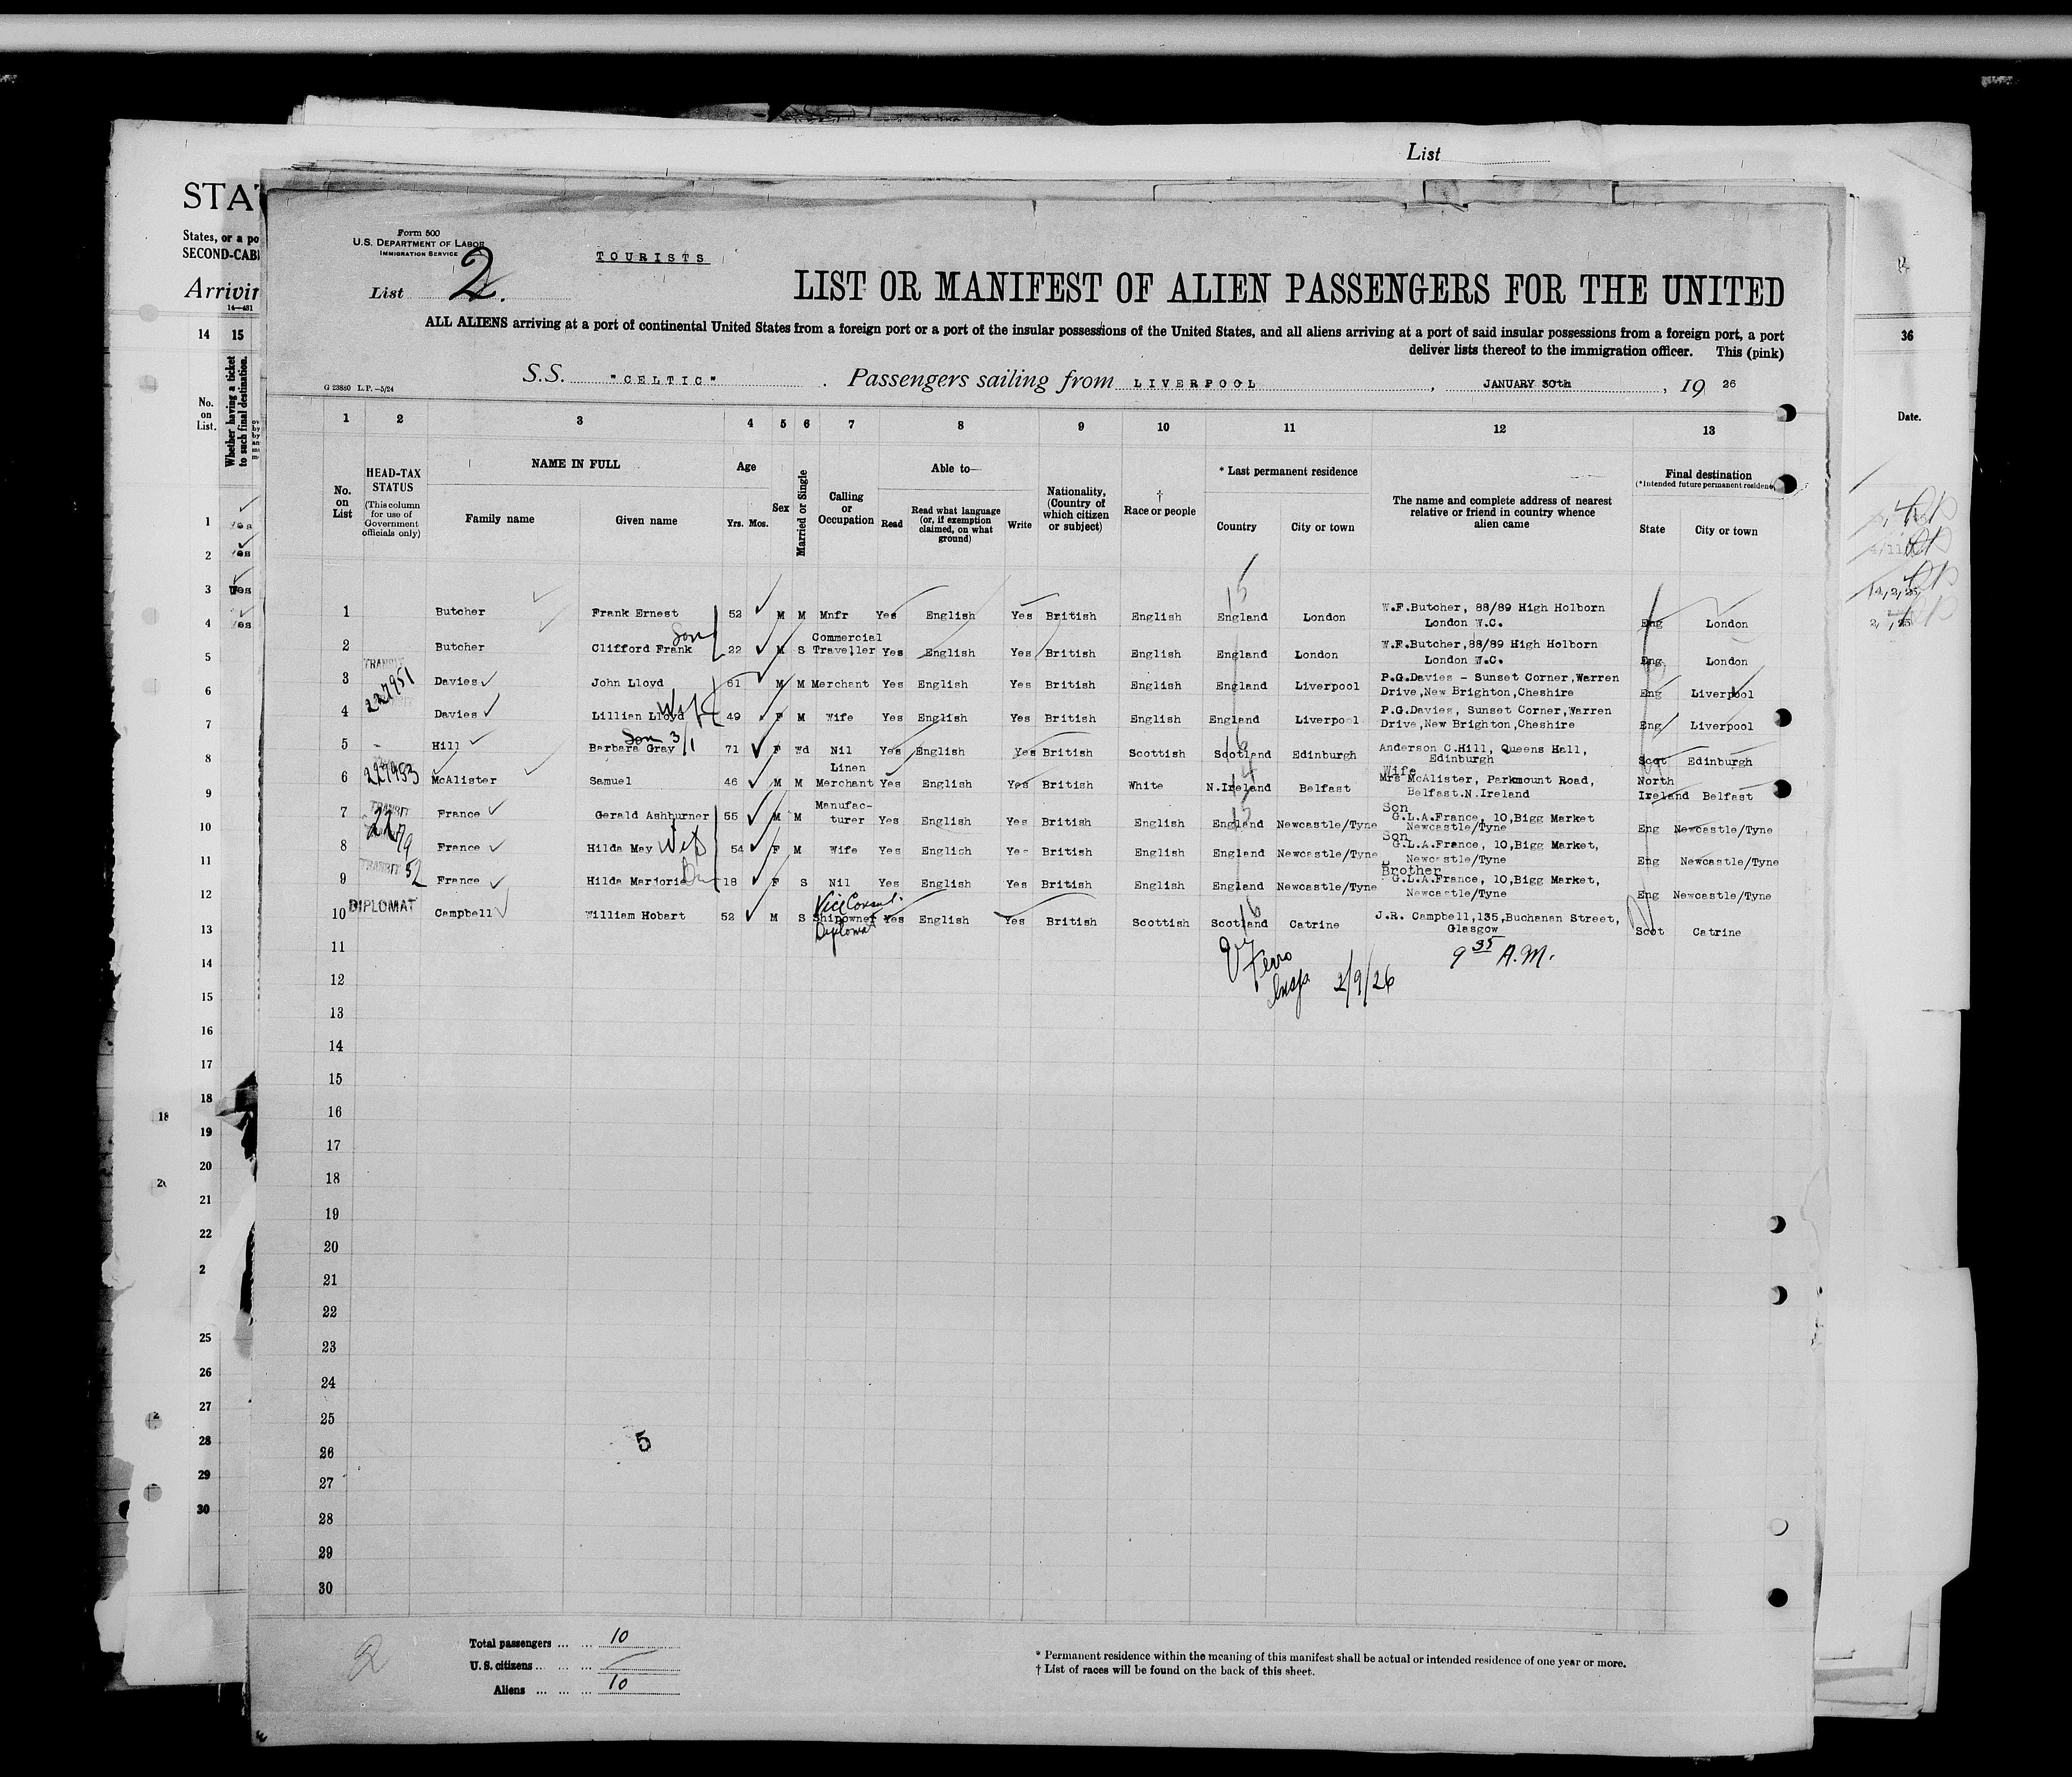 List
STA
States, or a po
SECOND-CABI
Arrivin
14—481
14 15
No. on List.
Whether having a ticket to such final destination.
36
Date.
Form 500
U.S. DEPARTMENT OF LABOR
IMMIGRATION SERVICE
TOURISTS
List 2.
LIST OR MANIFEST OF ALIEN PASSENGERS FOR THE UNITED
ALL ALIENS arriving at a port of continental United States from a foreign port or a port of the insular possessions of the United States, and all aliens arriving at a port of said insular possessions from a foreign port, a port
deliver lists thereof to the immigration officer. This (pink)
G 23880 L.P.—5/24
S.S. "CELTIC" . Passengers sailing from LIVERPOOL , JANUARY 30th , 19 26
1 2 3 4 5 6 7 8 9 10 11 12 13
No. on List
HEAD-TAX STATUS
(This column for use of Government officials only)
NAME IN FULL
Family name Given name
Age
Yrs. Mos.
Sex
Married or Single
Calling or Occupation
Able to—
Read
Read what language (or, if exemption claimed, on what ground)
Write
Nationality, (Country of which citizen or subject)
† Race or people
* Last permanent residence
Country City or town
The name and complete address of nearest relative or friend in country whence alien came
Final destination
(*Intended future permanent residence)
State City or town
1 Butcher Frank Ernest 52 M M Mnfr Yes English Yes British English England London W.F.Butcher, 88/89 High Holborn London W.C. Eng London
2 Butcher Clifford Frank Son 22 M S Commercial Traveller Yes English Yes British English England London W.F.Butcher,88/89 High Holborn London W.C. Eng London
3 TRANSIT 227951 Davies John Lloyd 61 M M Merchant Yes English Yes British English England Liverpool P.G.Davies - Sunset Corner,Warren Drive,New Brighton,Cheshire Eng Liverpool
4 Davies Lillian Lloyd Wife 49 F M Wife Yes English Yes British English England Liverpool P.G.Davies, Sunset Corner,Warren Drive,New Brighton,Cheshire Eng Liverpool
5 Hill Barbara Gray Son 3/1 71 F Wd Nil Yes English Yes British Scottish Scotland Edinburgh Anderson C.Hill, Queens Hall, Edinburgh Scot Edinburgh
6 227953 McAlister Samuel 46 M M Linen Merchant Yes English Yes British White N.Ireland Belfast Wife Mrs McAlister, Parkmount Road, Belfast.N.Ireland North Ireland Belfast
7 TRANSIT France Gerald Ashburner 55 M M Manufac-turer Yes English Yes British English England Newcastle/Tyne Son G.L.A.France, 10,Bigg Market Newcastle/Tyne Eng Newcastle/Tyne
8 France Hilda May Wife 54 F M Wife Yes English Yes British English England Newcastle/Tyne Son G.L.A.France, 10,Bigg Market, Newcastle/Tyne Eng Newcastle/Tyne
9 TRANSIT 52 France Hilda Marjorie 18 F S Nil Yes English Yes British English England Newcastle/Tyne Brother G.L.A.France, 10,Bigg Market, Newcastle/Tyne Eng Newcastle/Tyne
10 DIPLOMAT Campbell William Hobart 52 M S Vice Consul. Shipowner Diplomat Yes English Yes British Scottish Scotland Catrine J.R. Campbell,135,Buchanan Street, Glasgow Scot Catrine
Insp. 2/9/26 9 35 A.M.
11
12
13
14
15
16
17
18
19
20
21
22
23
24
25
26
27
28
29
30
5
2
Total passengers ... ... 10
U.S. citizens ... ... ...
Aliens ... ... ... 10
* Permanent residence within the meaning of this manifest shall be actual or intended residence of one year or more.
† List of races will be found on the back of this sheet.